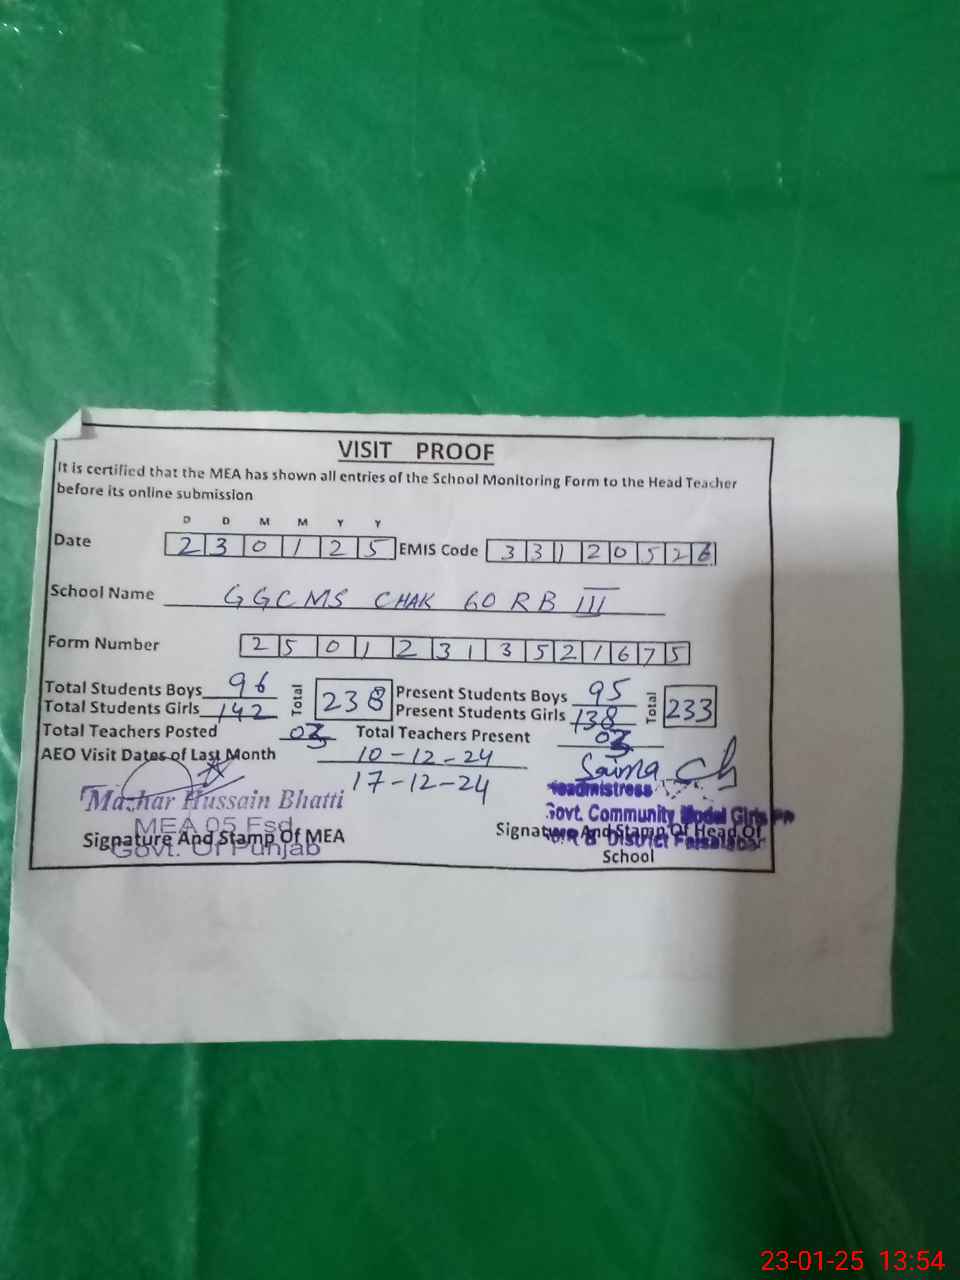 VISIT PROOF
It is certified that the MEA has shown all entries of the School Monitoring Form to the Head Teacher
before its online submission
D D M M Y Y
Date 2 3 0 1 2 5 EMIS Code 3 3 1 2 0 5 2 6
School Name GGCMS CHAK 60 RB III
Form Number 2 5 0 1 2 3 1 3 5 2 1 6 7 5
Total Students Boys 96 Total 238 Present Students Boys 95 Total 233
Total Students Girls 142 Present Students Girls 138
Total Teachers Posted 03 Total Teachers Present 03
AEO Visit Dates of Last Month 10-12-24
17-12-24
Saima Ch
Mazhar Hussain Bhatti
MEA 05 Fsd
Govt. Of Punjab
Signature And Stamp Of MEA
Headmistress
Govt. Community Model Girls
District Faisalabad
Signature And Stamp Of Head Of
School
23-01-25 13:54